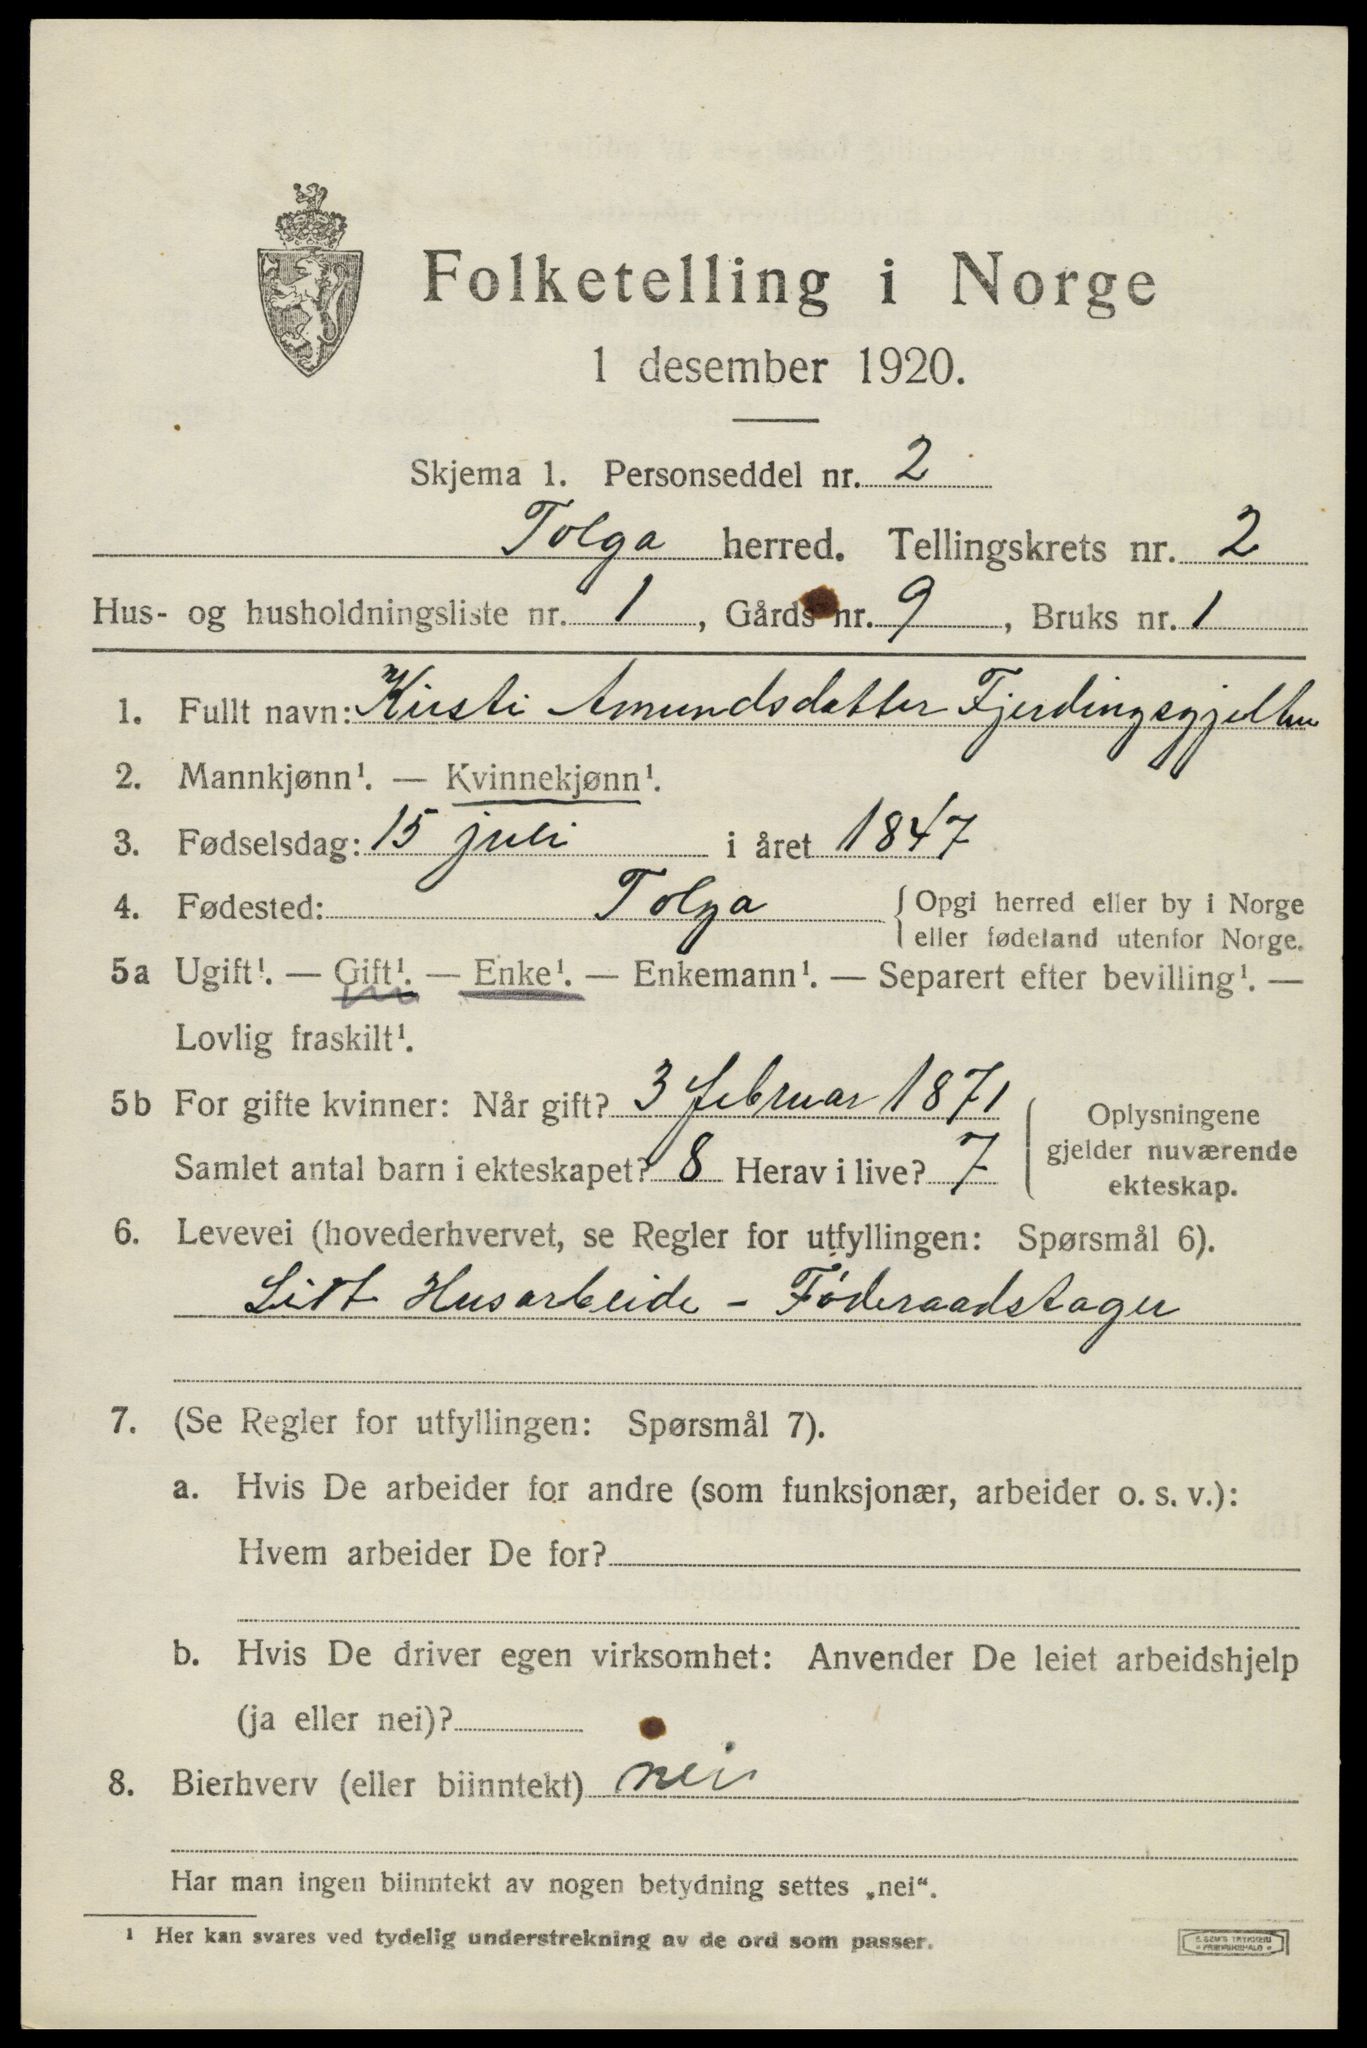 Folketelling i Norge
1 desember 1920.
Skjema 1. Personseddel nr. 2
Tolga herred. Tellingskrets nr. 2
Hus- og husholdningsliste nr. 1, Gårds nr. 9, Bruks nr. 1
1. Fullt navn: Kirsti Amundsdatter Fjerdingsgjelten
2. Mannkjønn¹. — Kvinnekjønn¹.
3. Fødselsdag: 15 juli i året 1847
4. Fødested: Tolga { Opgi herred eller by i Norge
eller fødeland utenfor Norge.
5a Ugift¹. — Gift¹. — Enke¹. — Enkemann¹. — Separert efter bevilling¹. —
Lovlig fraskilt¹.
5b For gifte kvinner: Når gift? 3 februar 1871
Samlet antal barn i ekteskapet? 8 Herav i live? 7
Oplysningene
gjelder nuværende
ekteskap.
6. Levevei (hovederhvervet, se Regler for utfyllingen: Spørsmål 6).
Litt Husarbeide - Föderaadstager
7. (Se Regler for utfyllingen: Spørsmål 7).
a. Hvis De arbeider for andre (som funksjonær, arbeider o. s. v.):
Hvem arbeider De for?
b. Hvis De driver egen virksomhet: Anvender De leiet arbeidshjelp
(ja eller nei)?
8. Bierhverv (eller biinntekt) nei
Har man ingen biinntekt av nogen betydning settes „nei“.
¹ Her kan svares ved tydelig understrekning av de ord som passer.
E. SEM'S TRYKKERI
FREDRIKSHALD